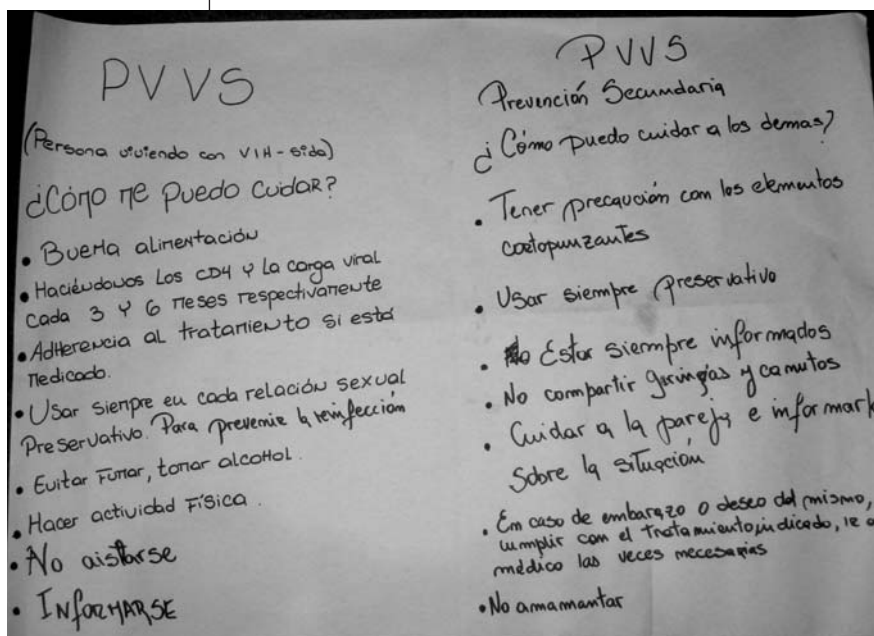 PVVS
(Persona viviendo con VIH-sida)
¿Cómo me puedo cuidar?
• Buena alimentación
• Haciéndonos los CD4 y la carga viral
cada 3 y 6 meses respectivamente
• Adherencia al tratamiento si está
medicado.
• Usar siempre en cada relación sexual
Preservativo. Para prevenir la reinfección
• Evitar fumar, tomar alcohol.
• Hacer actividad física.
• No aislarse
• INFORMARSE
PVVS
Prevención Secundaria
¿Cómo puedo cuidar a los demas?
• Tener precaución con los elementos
cortopunzantes
• Usar siempre preservativo
• Estar siempre informados
• No compartir geringas y canutos
• Cuidar a la pareja e informarl
sobre la situación
• En caso de embarazo o deseo del mismo,
cumplir con el tratamiento indicado, ir a
médico las veces necesarias
• No amamantar